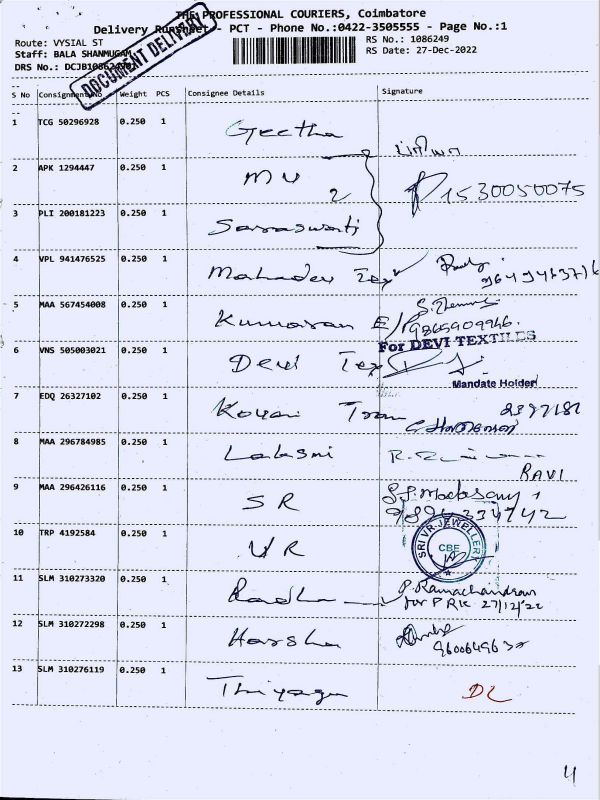 THE PROFESSIONAL COURIERS, Coimbatore
Delivery Runsheet - PCT - Phone No.:0422-3505555 - Page No.:1
Route: VYSIAL ST
RS No.: 1086249
Staff: BALA SHANMUGAM
RS Date: 27-Dec-2022
DRS No.:
DOCUMENT DELIVERY
S No Consignment No Weight PCS Consignee Details Signature
1 TCG 50296928 0.250 1 Geetha
2 APK 1294447 0.250 1 MV 2 1530050075
3 PLI 200181223 0.250 1 Saraswati
4 VPL 941476525 0.250 1 Mahadev Tex
5 MAA 567454008 0.250 1 Kumaran E/P 9865909946.
For DEVI TEXTILES
6 VNS 505003021 0.250 1 Devi Tex
Mandate Holder
7 EDQ 26327102 0.250 1 Kovai Tran 2397182
8 MAA 296784985 0.250 1 Laksmi
RAVI
9 MAA 296426116 0.250 1 SR
10 TRP 4192584 0.250 1 VR
SRI VR JEWELLERY
CBE
11 SLM 310273320 0.250 1 Radha P. Ramachandran
for PRK 27/12/22
12 SLM 310272298 0.250 1 Harsha
13 SLM 310276119 0.250 1 Thiyagu DL
4